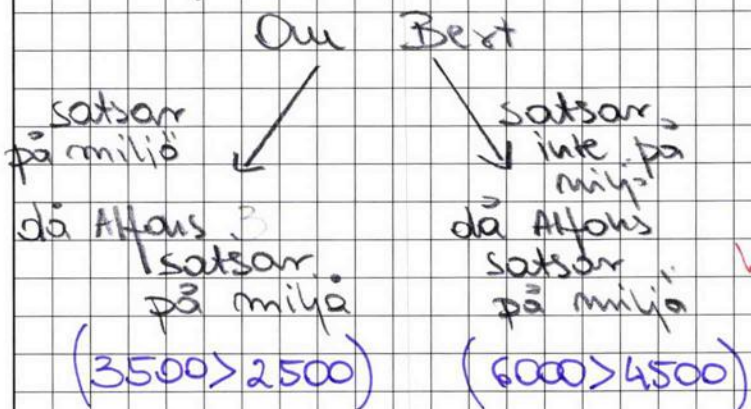 Om Bert
satsar
på miljö
då Alfons
satsar
på miljö
(3500>2500)
satsar
inte på
miljö
då Alfons
satsar
på miljö
(6000>4500)